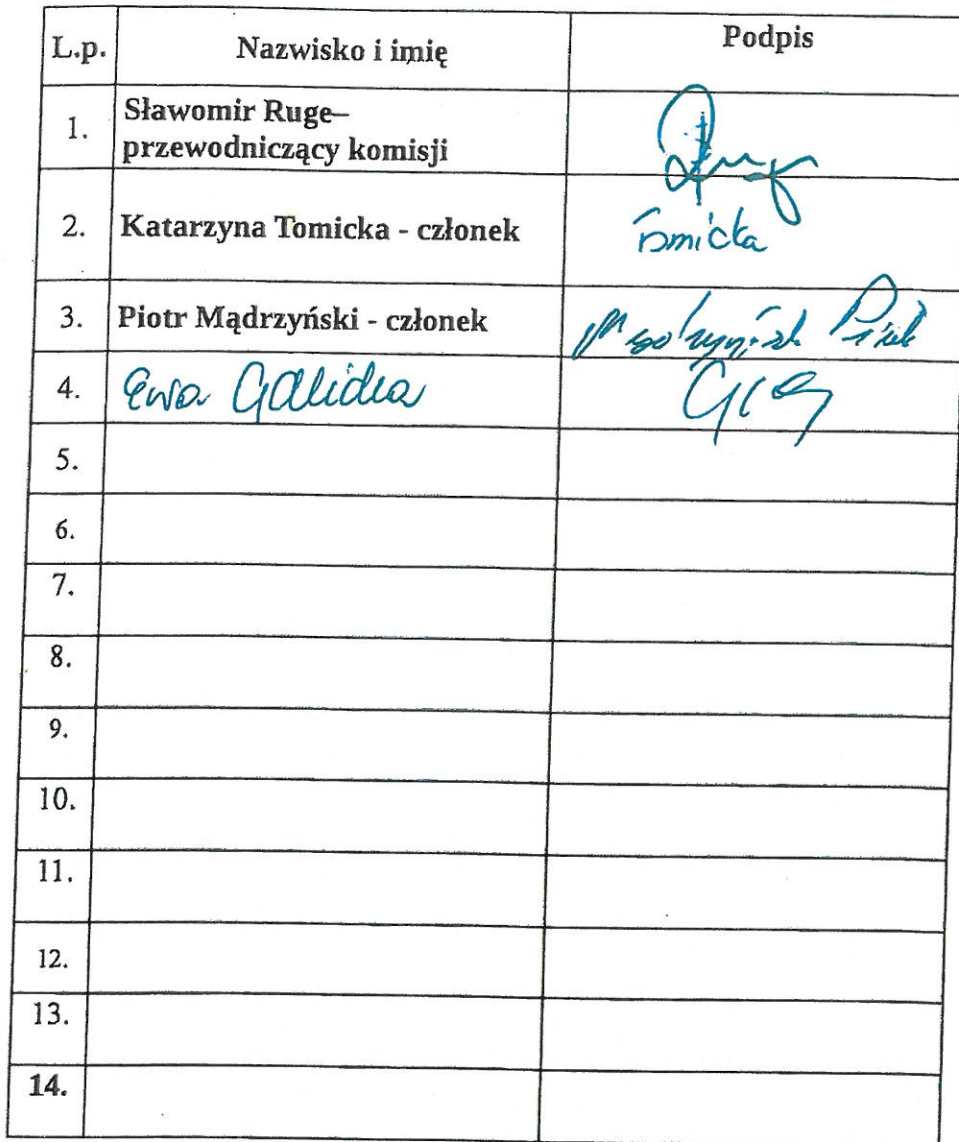 L.p. Nazwisko i imię Podpis
1. Sławomir Ruge–
przewodniczący komisji
2. Katarzyna Tomicka - członek Tomicka
3. Piotr Mądrzyński - członek
4. Ewa
5.
6.
7.
8.
9.
10.
11.
12.
13.
14.